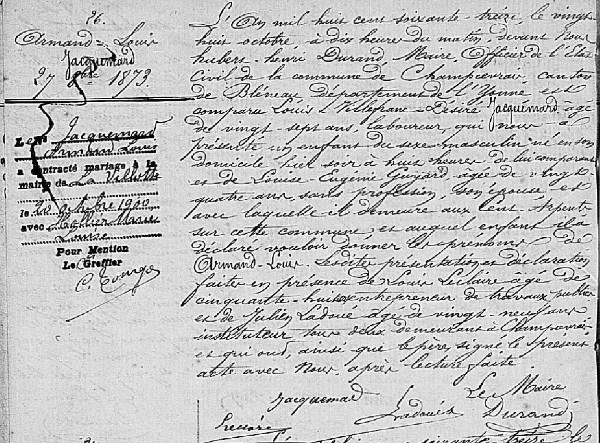 96.
Armand-Louis
Jacquemard
27 8bre 1873.
Le Né Jacquemard
Armand Louis
a contracté mariage à la
mairie de La Villotte
le 20 octobre 1900
avec
Louise
Pour Mention
Le Greffier
L'An mil huit cent soixante-treize, le vingt
huit octobre à dix heures du matin devant Nous
hubert-henri Durand, Maire, Officier de l'Etat
Civil de la commune de Champcevrais canton
de Bléneau département de l'Yonne est
comparu Louis Désiré Jacquemard agé
de vingt sept ans, laboureur, qui nous a
présenté un enfant du sexe masculin né en son
domicile hier soir à huit heures de lui comparant
et de Louise Eugénie Guyard agée de vingt
quatre ans sans profession, son épouse et
avec laquelle il demeure aux Cent Arpents
sur cette commune, et auquel enfant il a
déclaré vouloir donner les prénoms de
Armand-Louis. Lesdites présentation et déclaration
faites en présence de Louis Leclaire âgé de
cinquante-huit ans entrepreneur de travaux publics
et de Julien Ladoué agé de vingt-neuf ans
instituteur tous deux demeurant à Champcevrais
et qui ont, ainsi que le père, signé le présent
acte avec Nous après lecture faite
Jacquemard
Le Maire
Ladoué
Durand